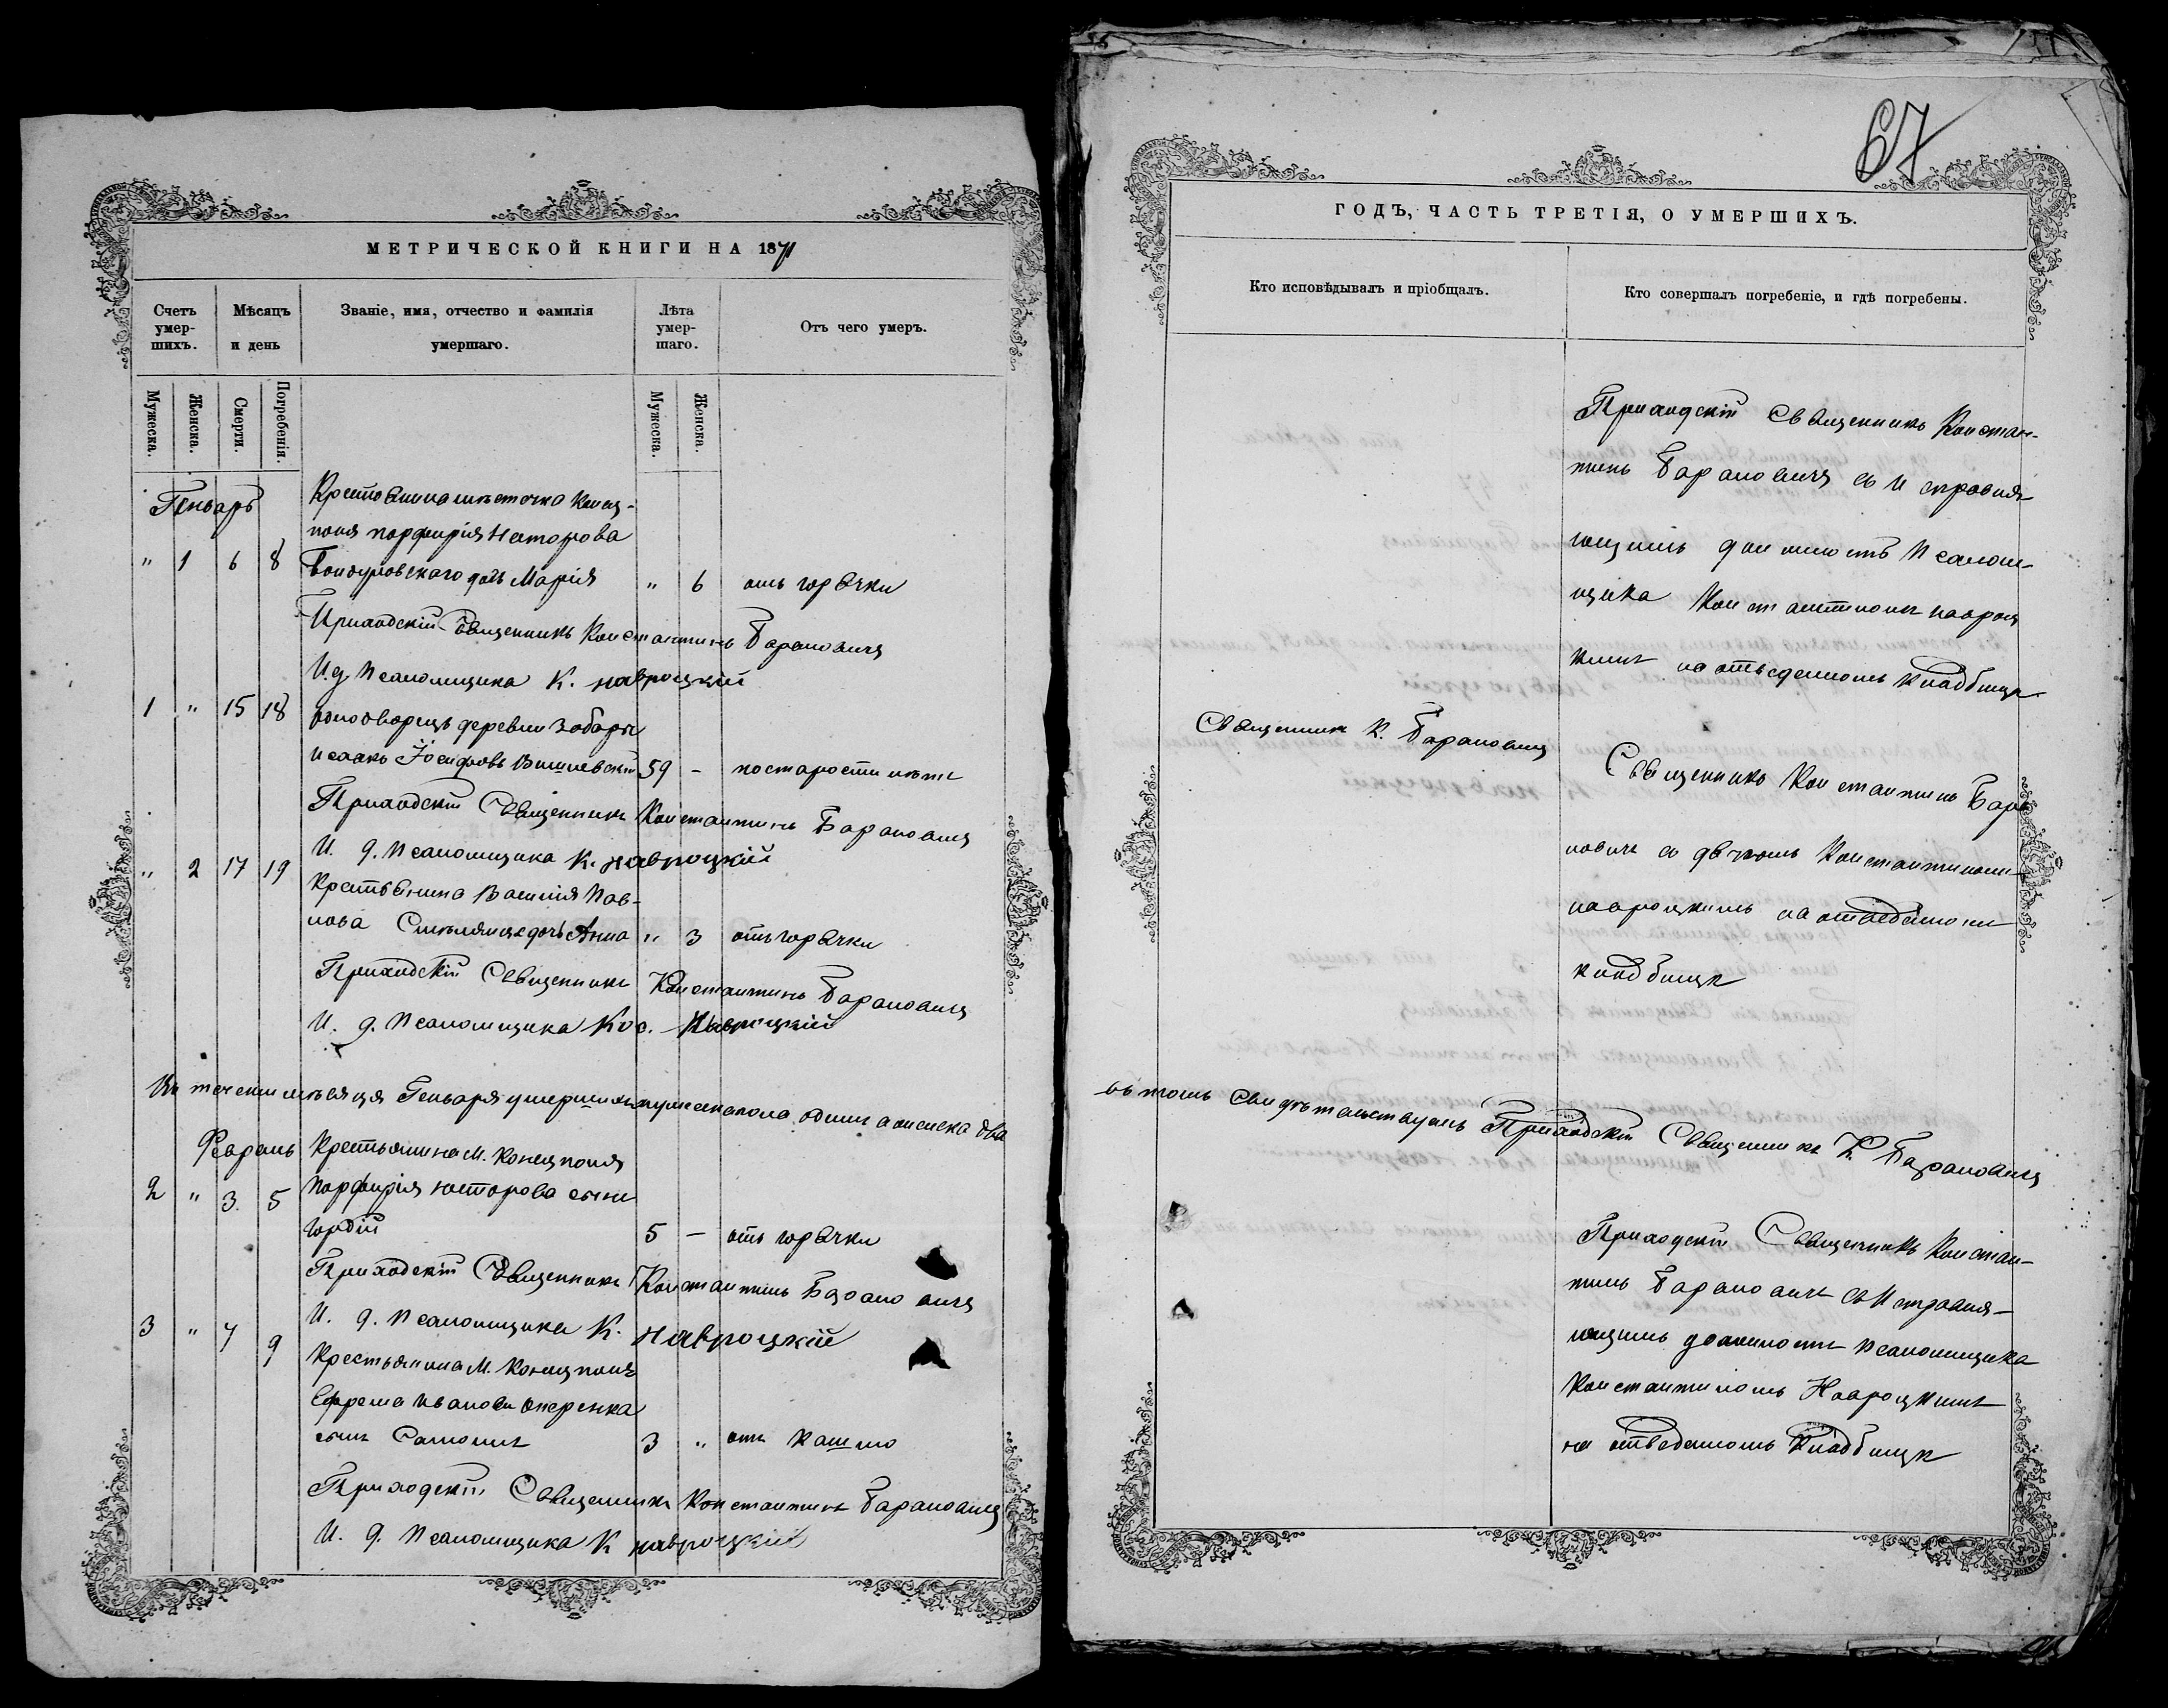 МЕТРИЧЕСКОЙ КНИГИ НА 1871
Счетъ умер-шихъ.
Мѣсяцъ и день
Званіе, имя, отчество и фамилія умершаго.
Лѣта умер-шаго.
Отъ чего умеръ.
Мужеска.
Женска.
Смерти.
Погребенія.
Мужеска.
Женска.
Генваръ
Крестьянина мѣстечка Конец-
поля Порфирія Несторова
" 1 6 8 дочь Марія " 6 отъ горячки
Приходскій Священникъ Константинъ Барановичъ
И. д. Псаломщика К. Навроцкій
1 " 15 18 Однодворецъ деревни Забары
Исаакъ Іосифовъ Вишневскій 59 - по старости лѣтъ
Приходскій Священникъ Константинъ Барановичъ
И. д. Псаломщика К. Навроцкій
" 2 17 19
Крестьянина Василія Пав-
лова дочь Анна " 3 отъ горячки
Приходскій Священникъ Константинъ Барановичъ
И. д. Псаломщика Кос. Навроцкій
Въ теченіи мѣсяца Генваря умершихъ мужеска пола одинъ а женска два
Февраль Крестьянина М. Конецполя
2 " 3. 5 Порфирія Несторова сынъ
Гордій 5 - отъ горячки
Приходскій Священникъ Константинъ Барановичъ
И. д. Псаломщика К. Навроцкій
3 " 7 9
Крестьянина М. Конецполя
Ефрема Иванова
сынъ 3 " отъ кашлю
Приходскій Священникъ Константинъ Барановичъ
И. д. Псаломщика К Навроцкій
67
ГОДЪ, ЧАСТЬ ТРЕТІЯ, О УМЕРШИХЪ.
Кто исповѣдывалъ и пріобщалъ.
Кто совершалъ погребеніе, и гдѣ погребены.
Приходскій Священникъ Констан-
тинъ Барановичъ съ Исправля-
ющимъ должность Псалом-
щика Константиномъ Навроц-
кимъ на отведенномъ кладбищѣ
Священник К. Барановичъ
Священникъ Константинъ Бара-
новичъ съ дьячкомъ Константиномъ
Навроцкимъ на отведенномъ
кладбищѣ
въ томъ свидѣтельствуемъ Приходскій Священникъ К. Барановичъ
Приходскій Священникъ Констан-
тинъ Барановичъ съ Исправля-
ющимъ должность Псаломщика
Константиномъ Навроцкимъ
на отведенномъ кладбищѣ